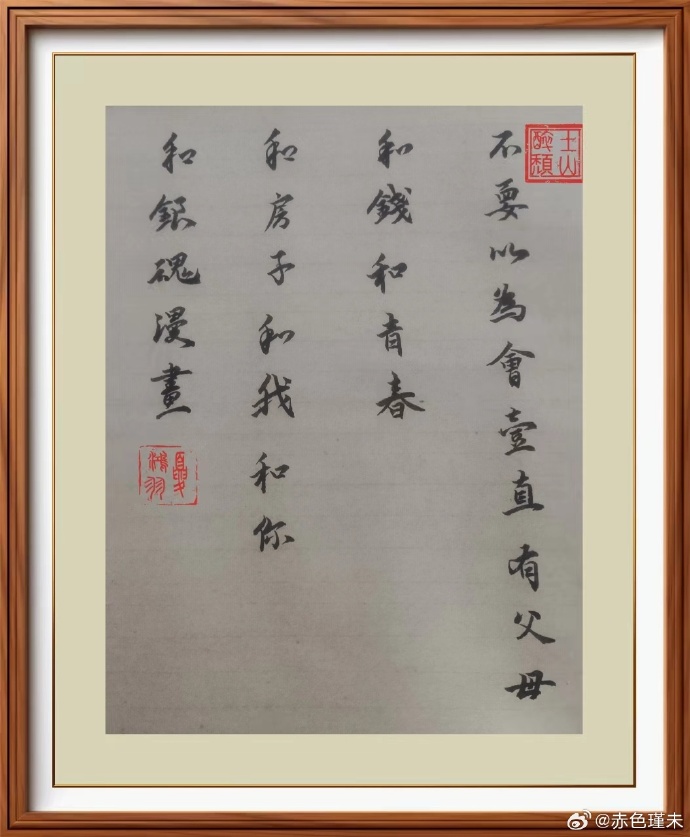 不要以為會壹直有父母
和錢和青春
和房子和我和你
和銀魂漫畫
@赤色瑾未